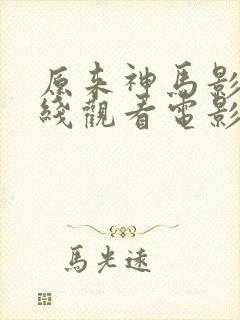 原来神馬影
綫觀看電影
馬光遠